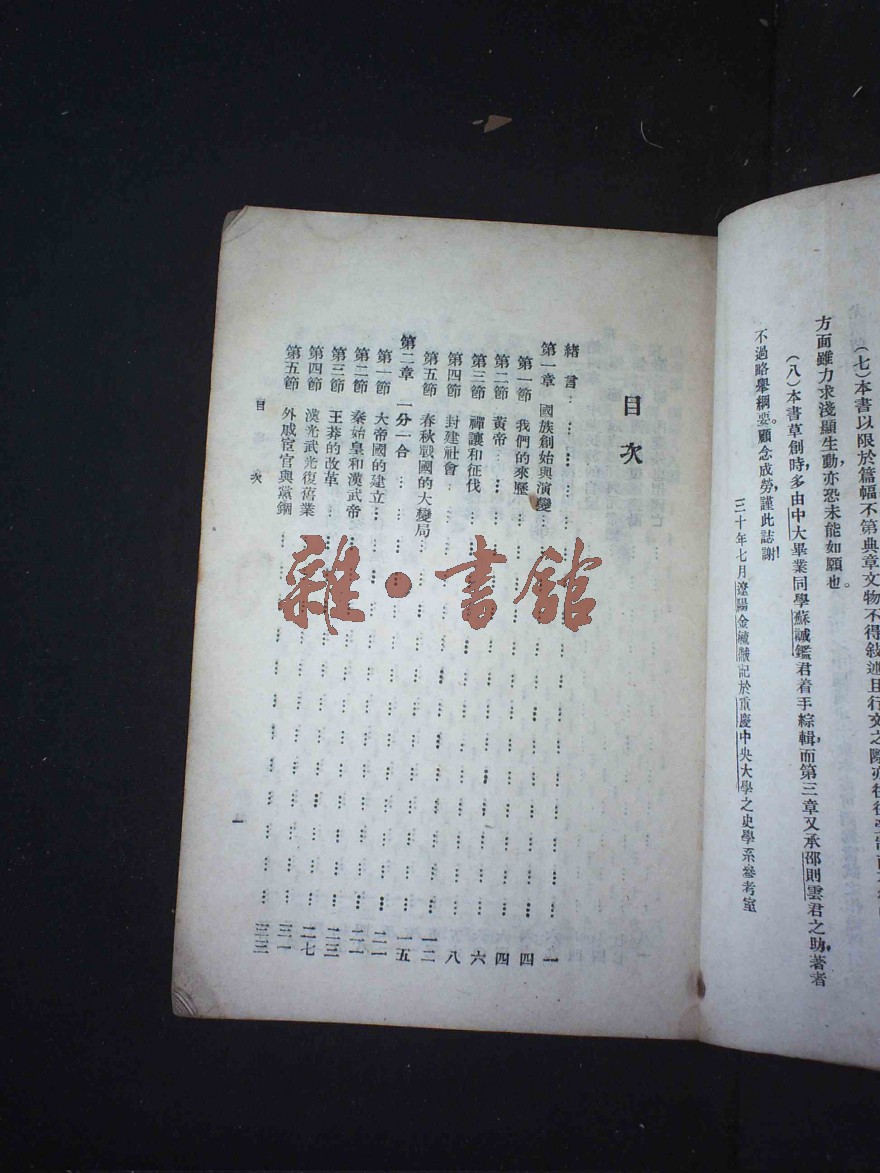 (七)本書以限於篇幅不第典章文物不得敍述且行文之際亦往往
方面雖力求淺顯生動,亦恐未能如願也。
(八)本書草創時,多由中大畢業同學蘇誠鑑君着手綜輯,而第三章又承邵則雲君之助,著者
不過略舉綱要。顧念成勞,謹此誌謝!
三十年七月遼陽金毓黻記於重慶中央大學之史學系參考室
目次
緒言………一
第一章 國族創始與演變………四
第一節 我們的來歷………四
第二節 黃帝………六
第三節 禪讓和征伐………八
第四節 封建社會………一二
第五節 春秋戰國的大變局………一五
第二章 一分一合………二一
第一節 大帝國的建立………二一
第二節 秦始皇和漢武帝………二三
第三節 王莽的改革………二七
第四節 漢光武光復舊業………三一
第五節 外戚宦官與黨錮………三三
目次
一
雜·書館